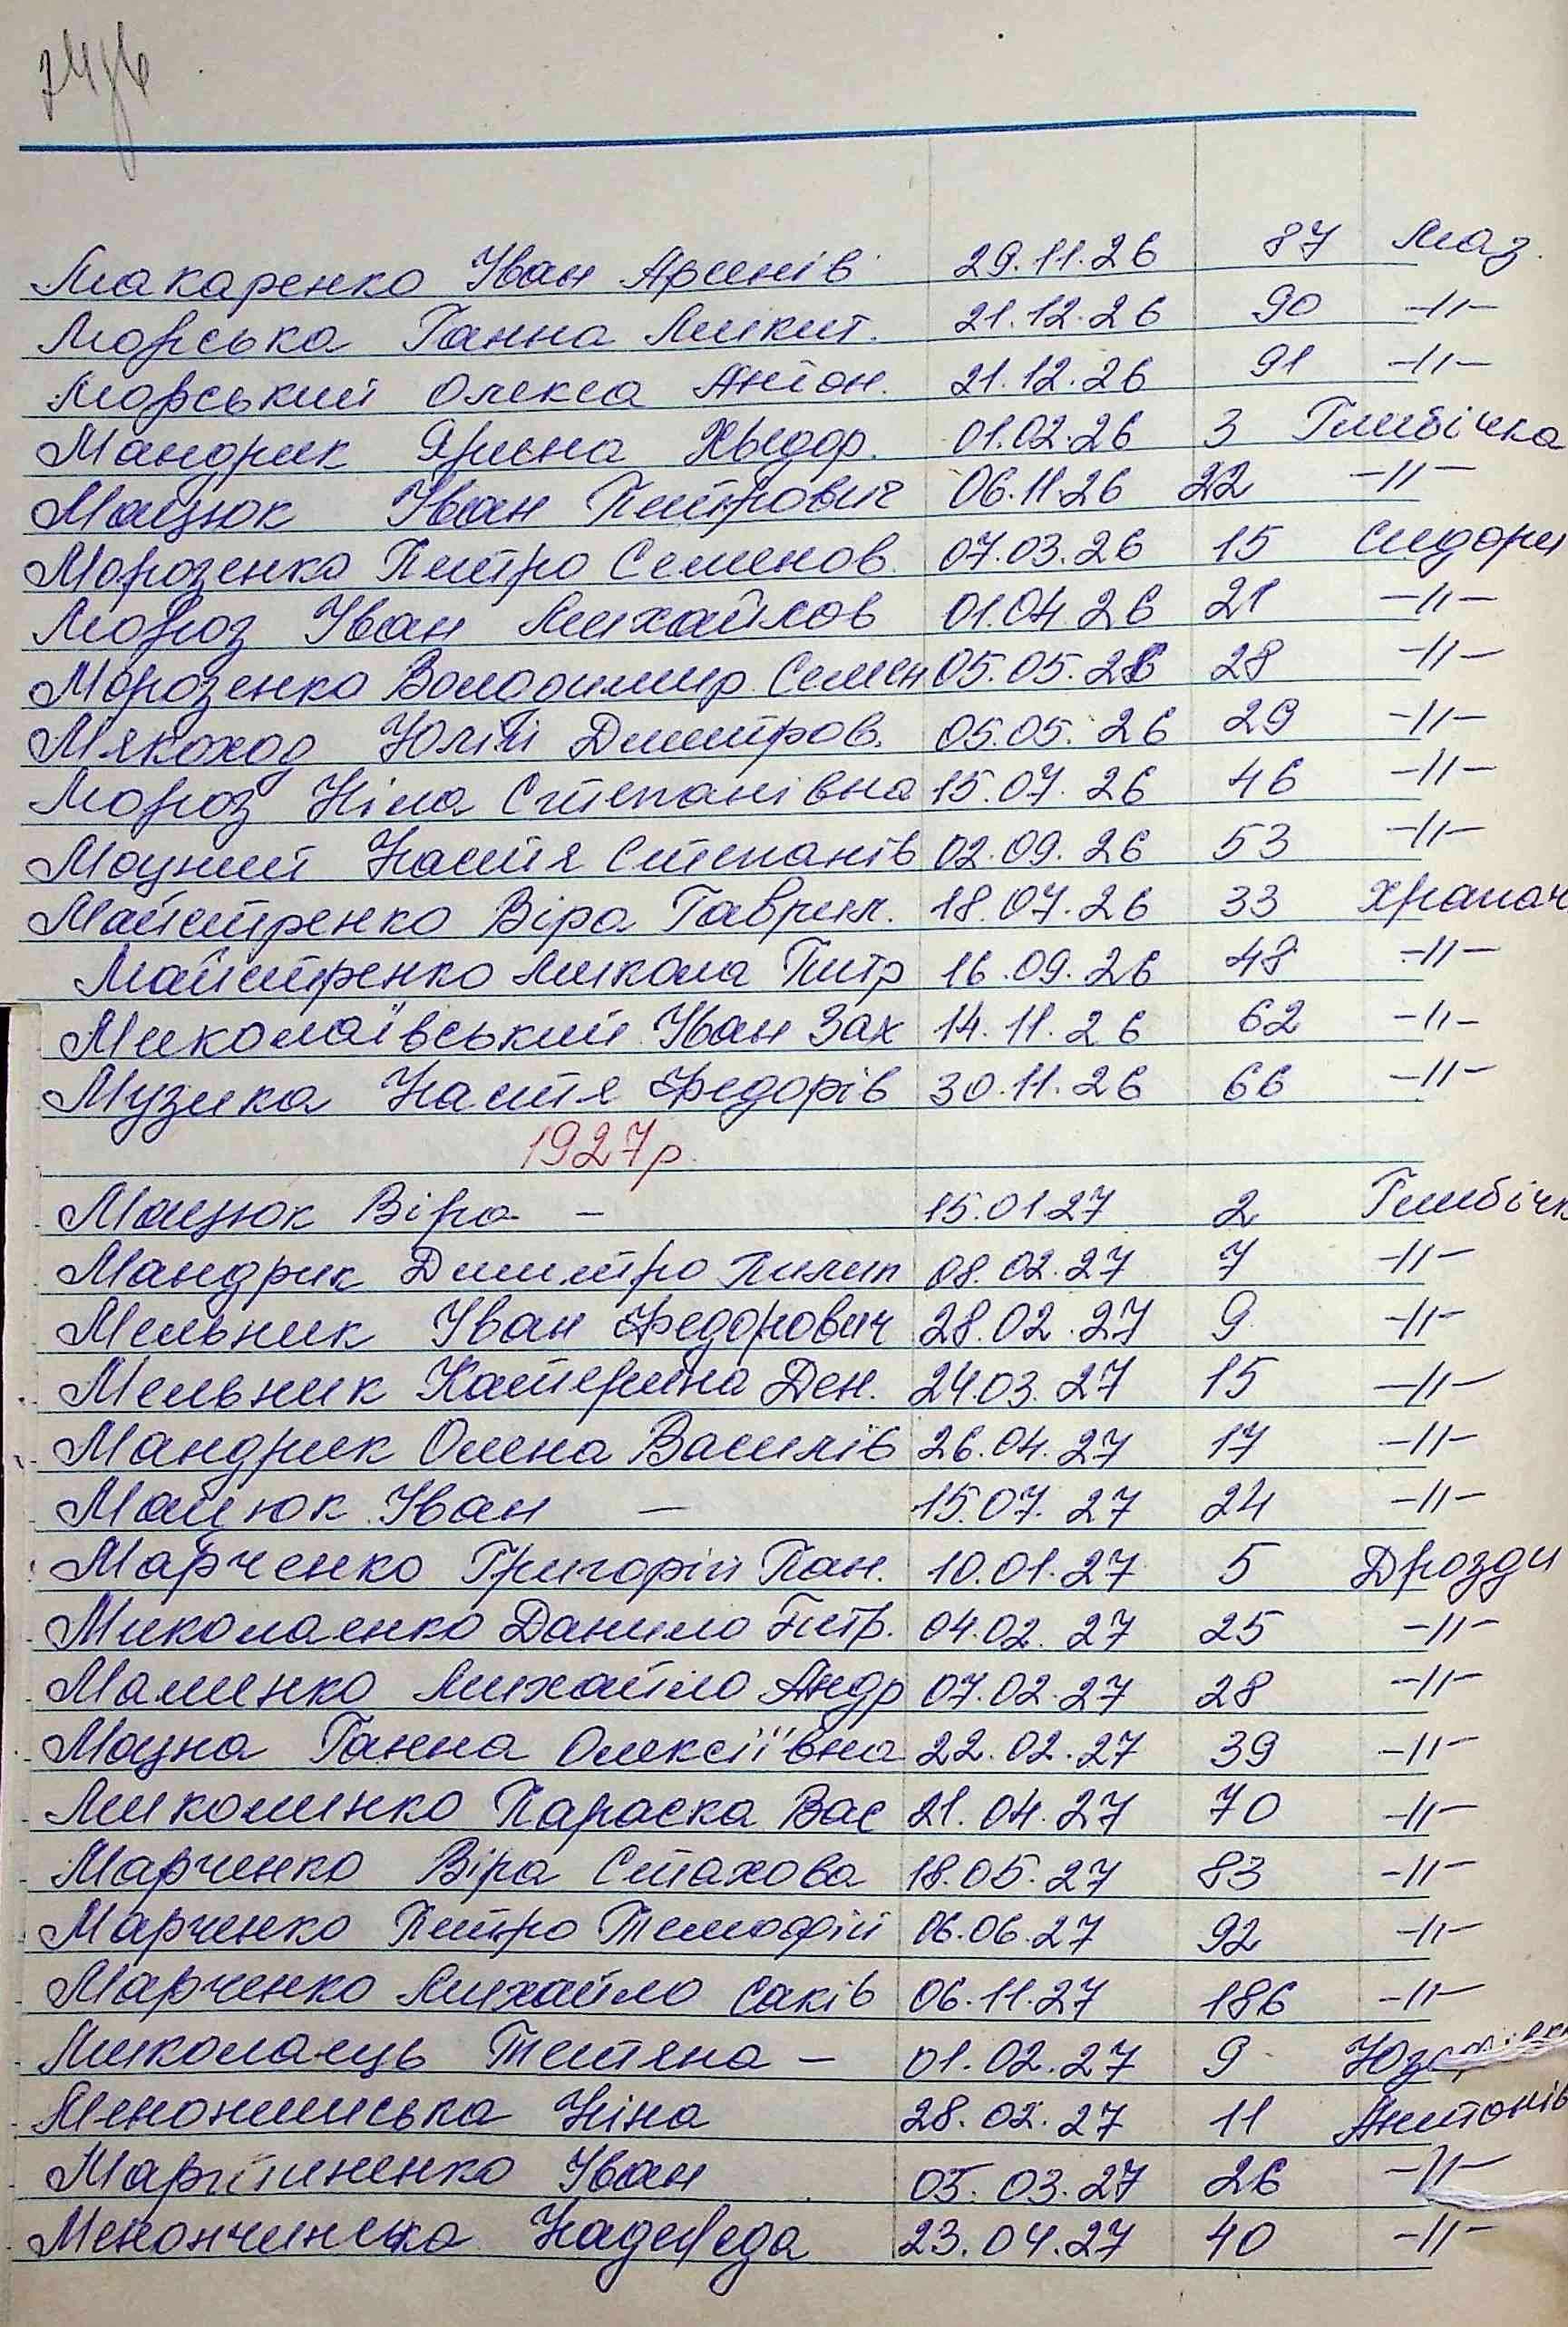 Макаренко Іван Арсенів 29.11.26 87 Маз.
Морська Ганна Микит. 21.12.26 90 -//-
Морський Олекса Антон. 21.12.26 91 -//-
Мандрик Ярина Хведор. 01.02.26 3 Глибічка
Мацюк Іван Петрович 06.11.26 22 -//-
Морозенко Петро Семенов. 07.03.26 15 Сидори
Мороз Іван Михайлов 01.04.26 21 -//-
Морозенко Володимир Семен 05.05.26 28 -//-
Мякоход Юлій Дмитров. 05.05.26 29 -//-
Мороз Ніла Степанівна 15.07.26 46 -//-
Моцний Настя Степанів 02.09.26 53 -//-
Майстренко Віра Гаврил. 18.07.26 33 Храпач
Майстренко Микола Петр 16.09.26 48 -//-
Миколаївський Іван Зах 14.11.26 62 -//-
Музика Настя Федорів 30.11.26 66 -//-
1927р.
Мацюк Віра - 15.01.27 2 Глибічк
Мандрик Димитро Пилип 08.02.27 7 -//-
Мельник Іван Федорович 28.02.27 9 -//-
Мельник Катерина Ден. 24.03.27 15 -//-
Мандрик Олена Василів 26.04.27 17 -//-
Мацюк Іван - 15.07.27 24 -//-
Марченко Григорій Пан. 10.01.27 5 Дрозди
Миколаенко Данило Петр. 04.02.27 25 -//-
Маленко Михайло Андр 07.02.27 28 -//-
Моцна Ганна Олексіївна 22.02.27 39 -//-
Миколенко Параска Вас 21.04.27 70 -//-
Марченко Віра Стахова 18.05.27 83 -//-
Марченко Петро Темофій 06.06.27 92 -//-
Марченко Михайло Саків 06.11.27 186 -//-
Миколаець Тетяна - 01.02.27 9
Ніна 28.02.27 11 Антонів
Мартиненко Іван 05.03.27 26 -//-
Менончинська Надежда 23.04.27 40 -//-